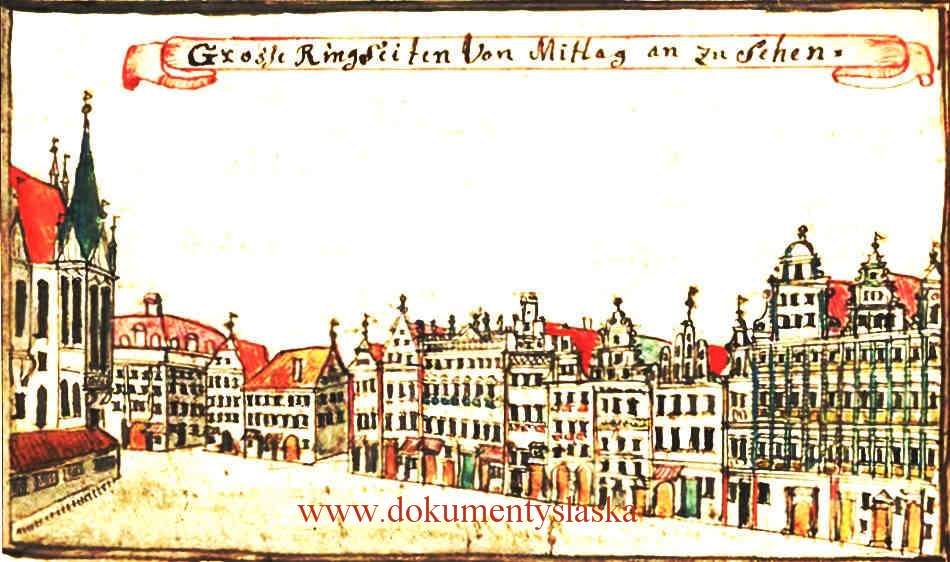 Grosse Ringseiten Von Mittag an zu sehen.
www.dokumentyslaska